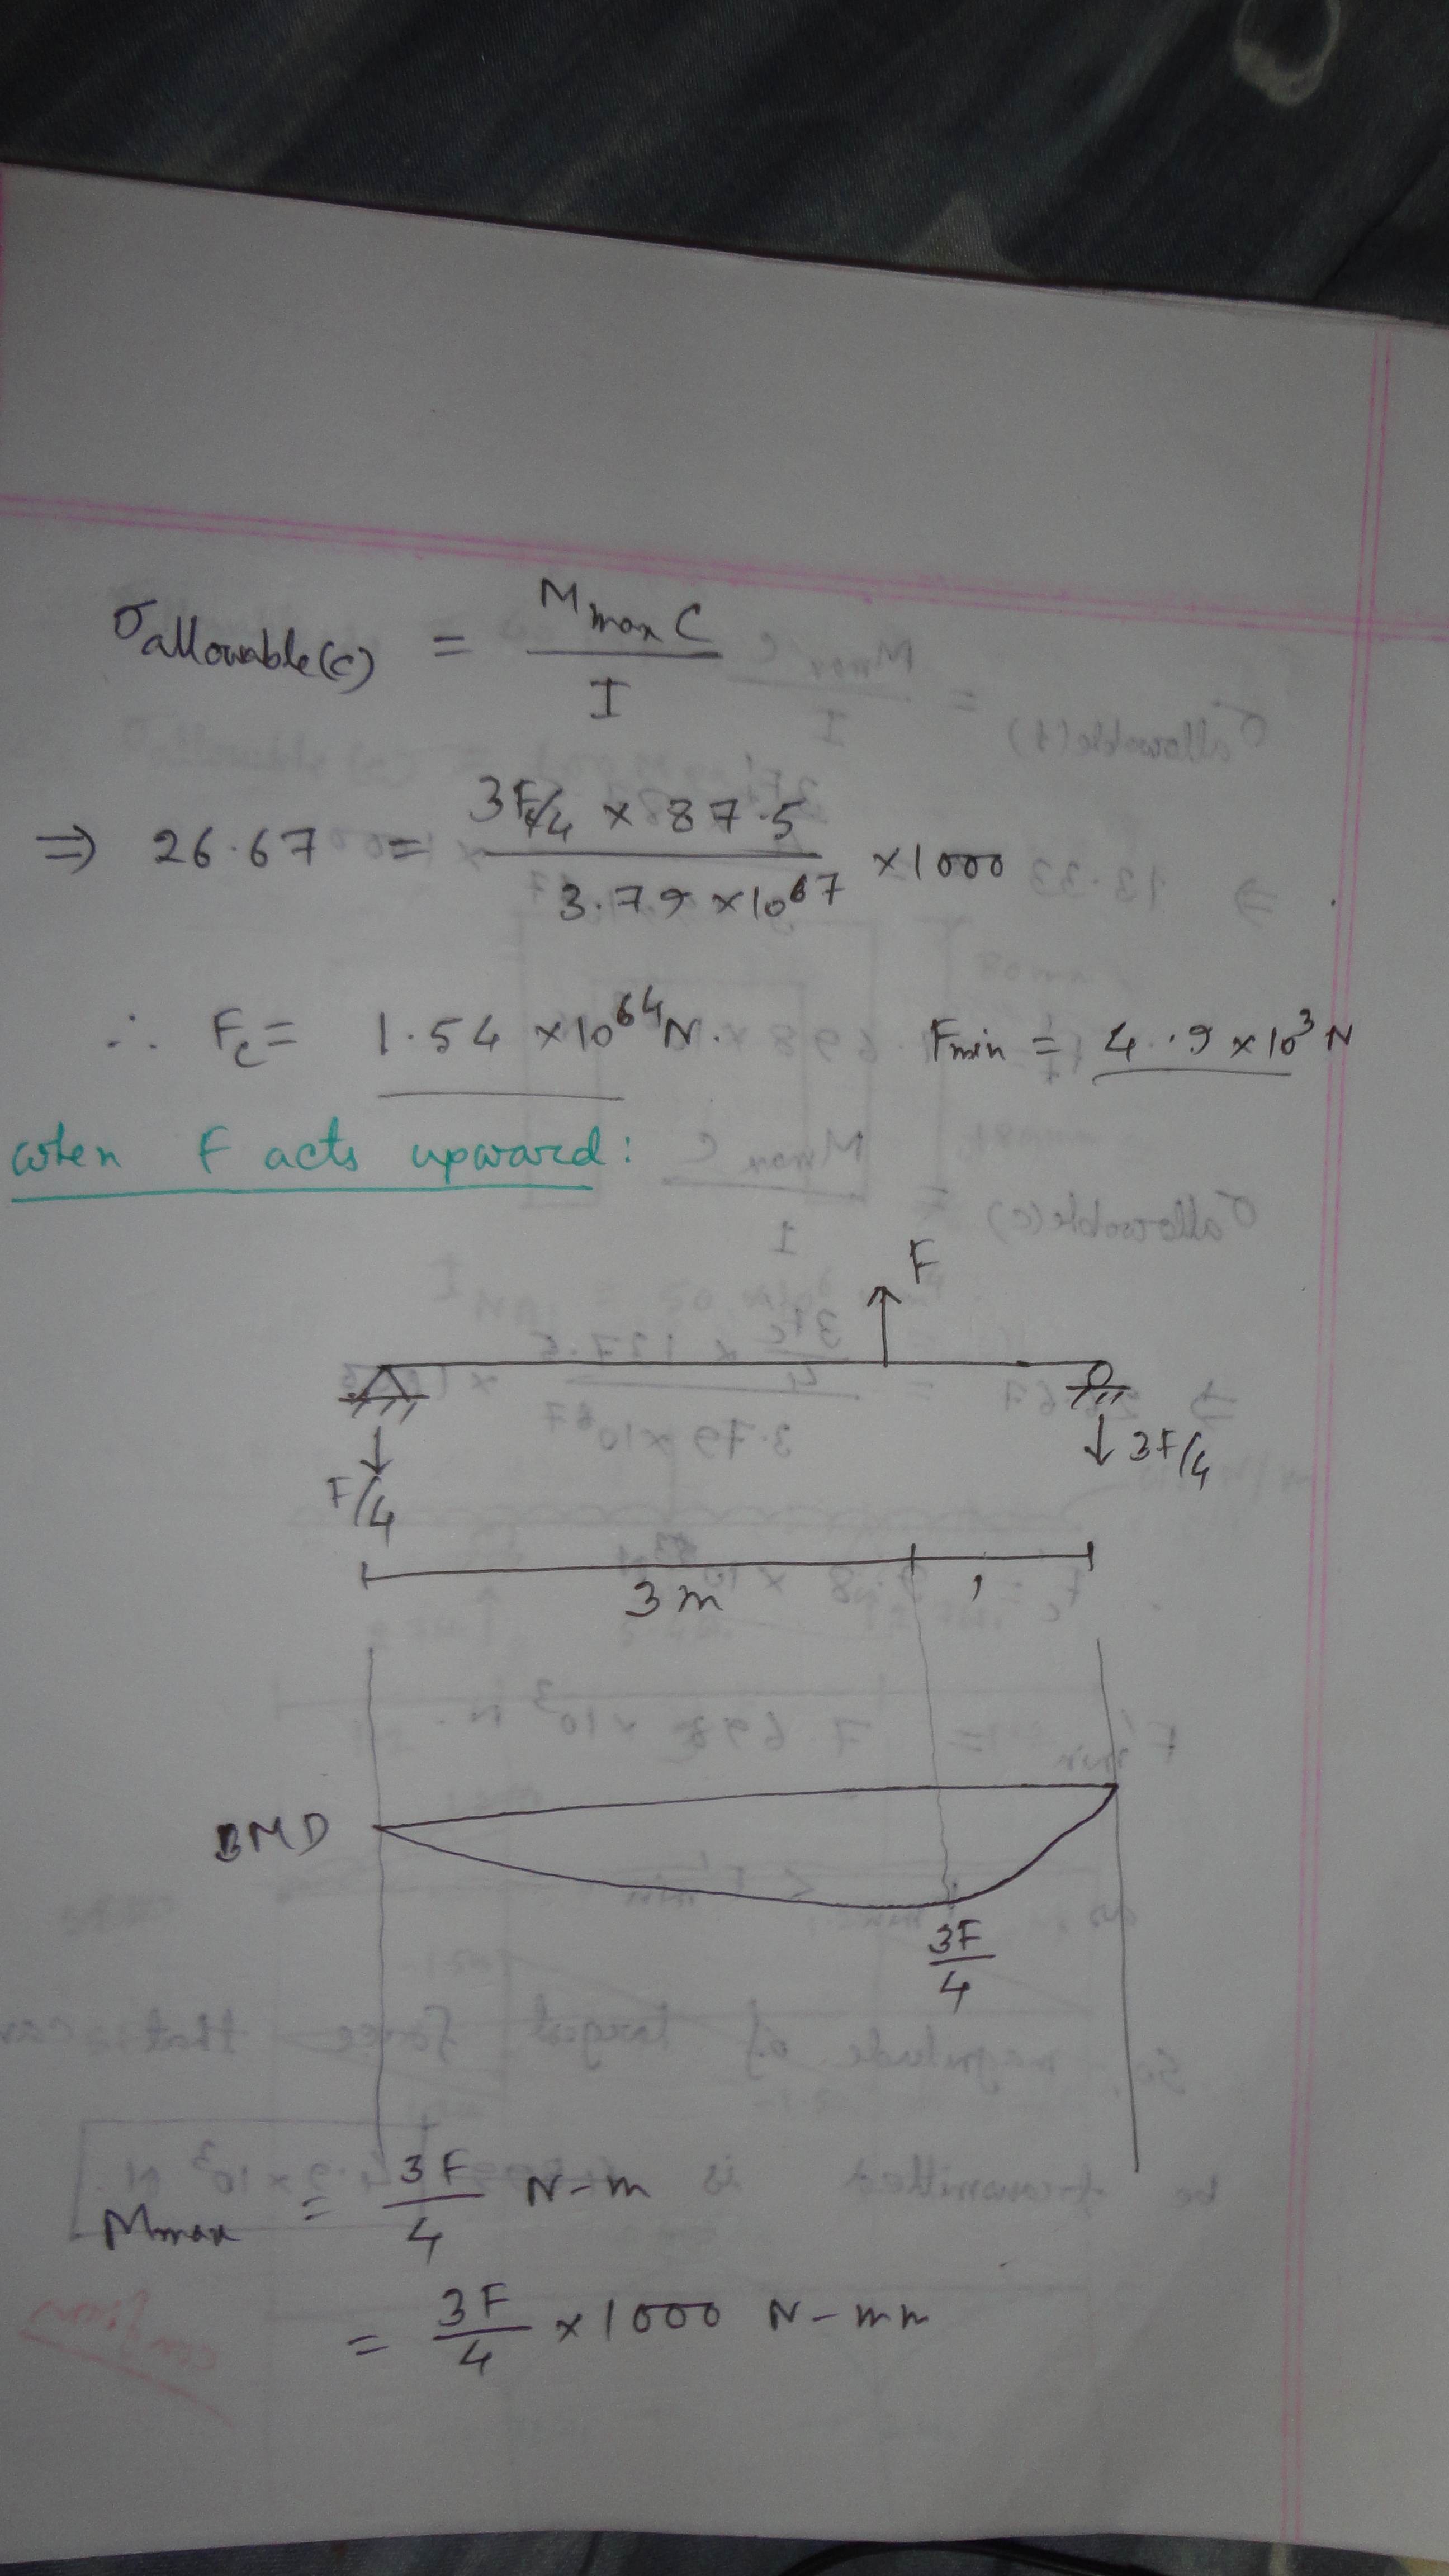 σallowable(c) = Mmax C / I
⇒ 26.67 = 3Fc/4 × 87.5 / 3.79 × 10^7 × 1000
∴ Fc = 1.54 × 10^4 N. Fmin = 4.9 × 10^3 N
when F acts upward:
F
F/4
3F/4
3 m 1
BMD
3F/4
Mmax = 3F/4 N-m
= 3F/4 × 1000 N-mm